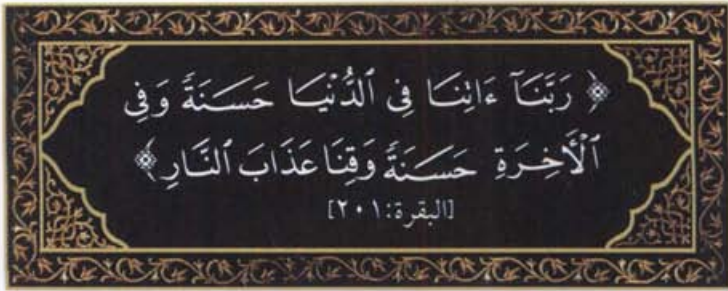 ﴿ رَبَّنَآ ءَاتِنَا فِي ٱلدُّنْيَا حَسَنَةً وَفِي
ٱلْأَخِرَةِ حَسَنَةً وَقِنَا عَذَابَ ٱلنَّارِ ﴾
[البقرة: ٢٠١]